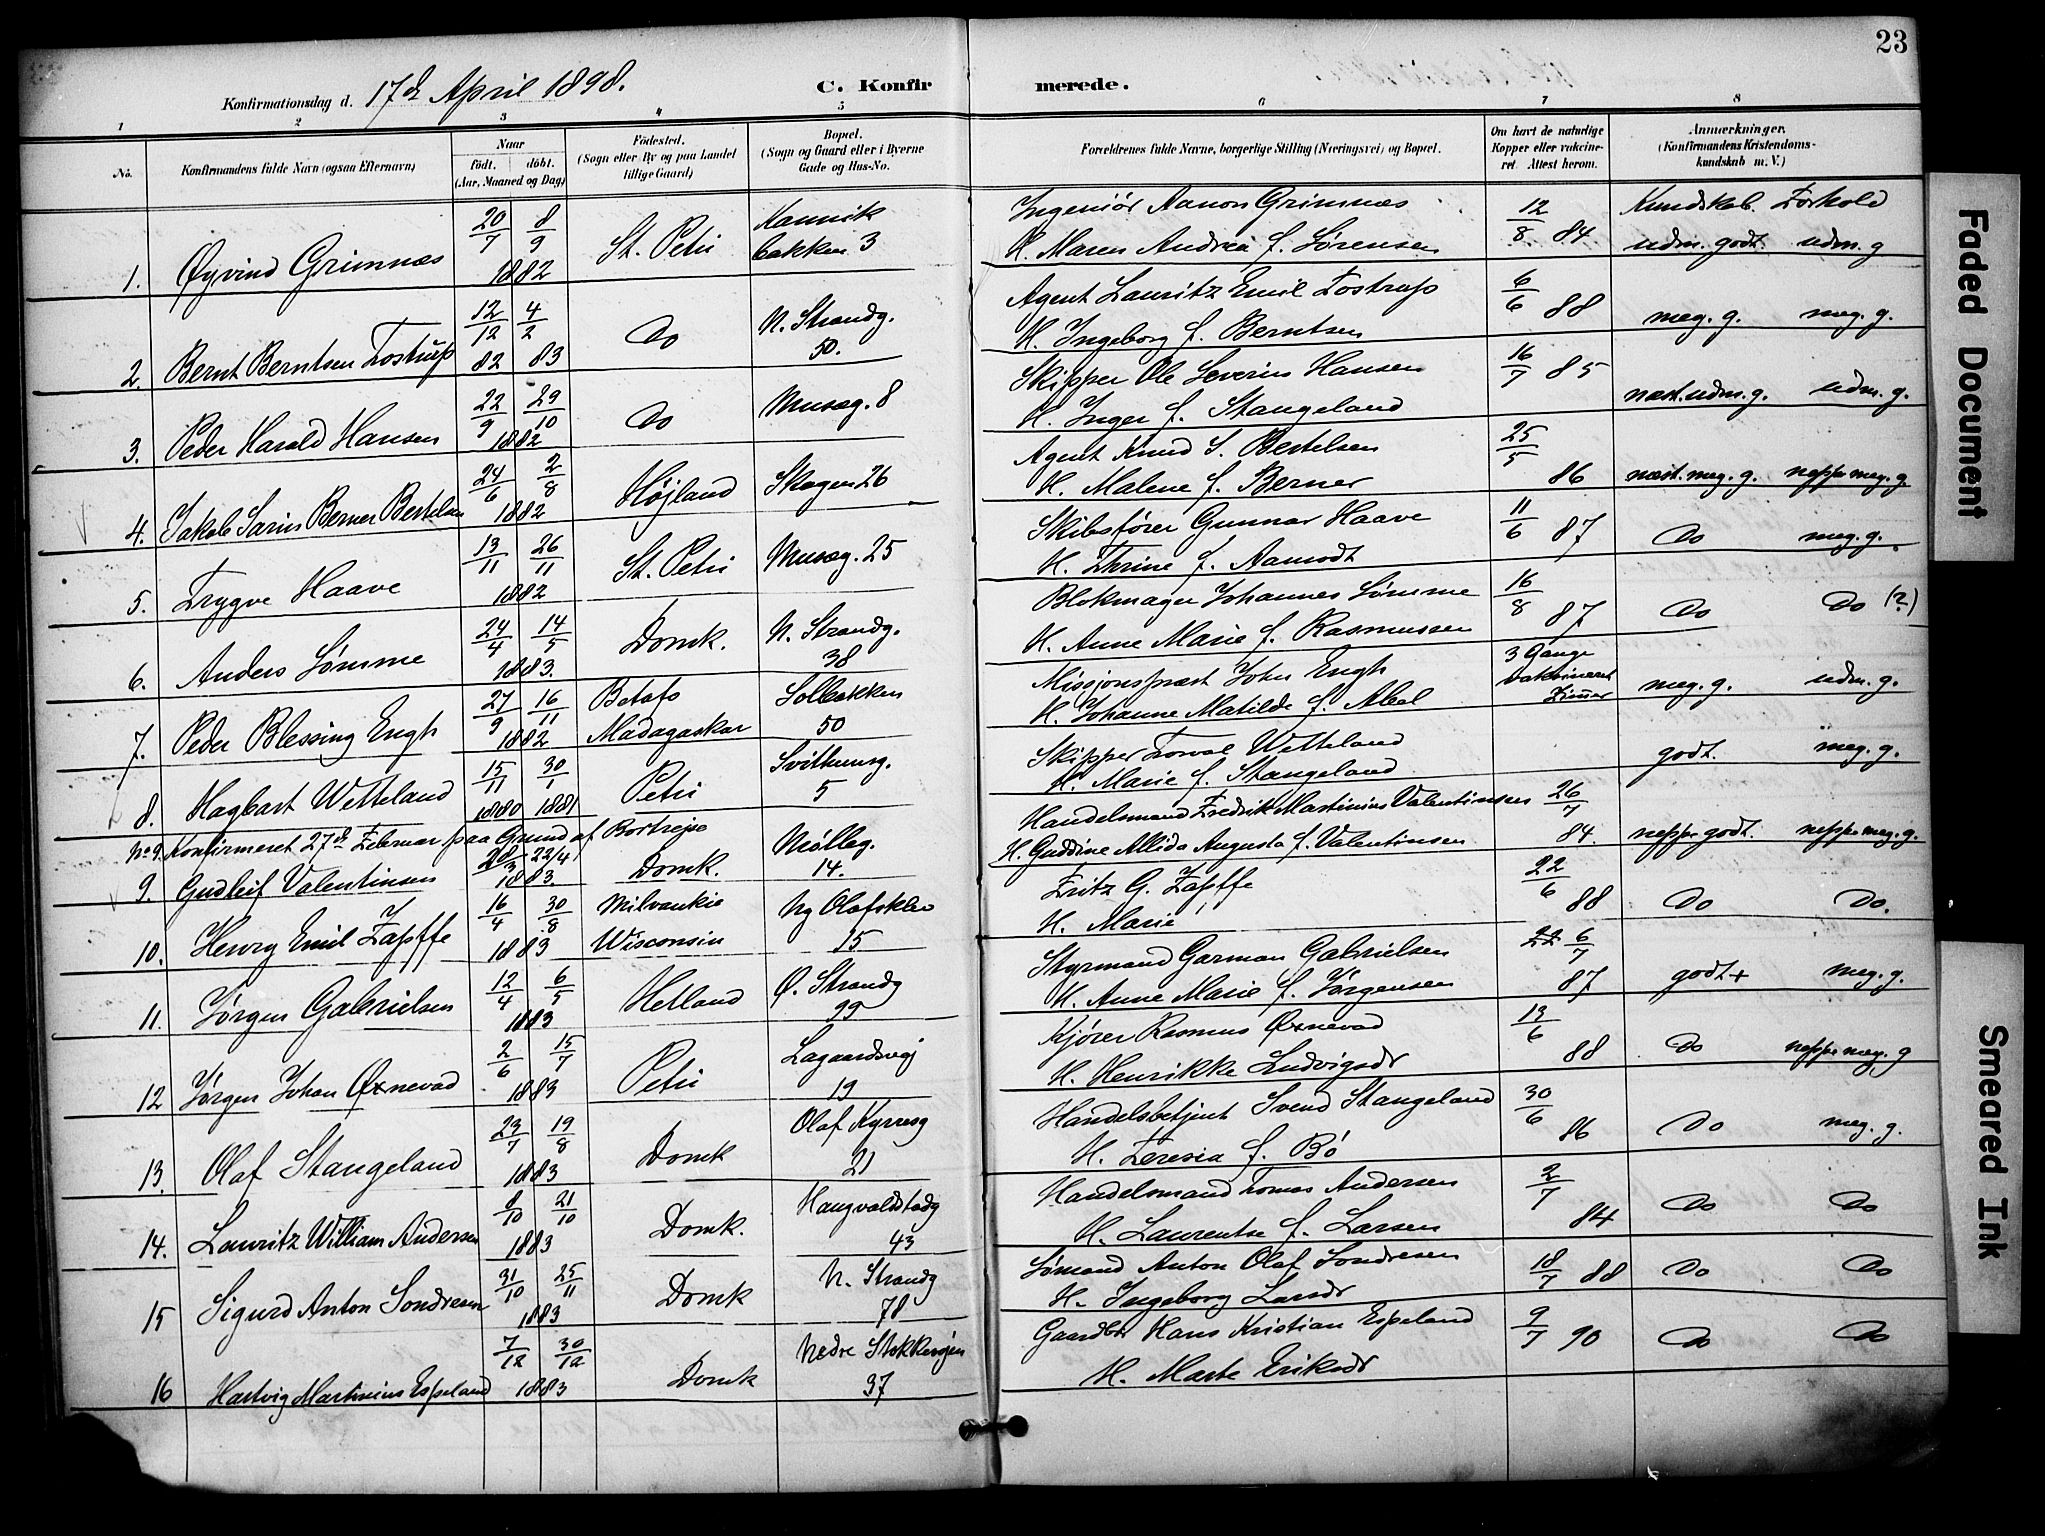 23
Konfirmationsdag d. 17de April 1898.
C. Konfirmerede.
1 2 3 4 5 6 7 8
No.
Konfirmandens fulde Navn (ogsaa Efternavn)
Naar
født. döbt.
(Aar, Maaned og Dag)
Födested.
(Sogn eller By og paa Landet
tillige Gaard)
Bopæl.
(Sogn og Gaard eller i Byerne
Gade og Hus-No.
Forældrenes fulde Navne, borgerlige Stilling (Næringsvei) og Bopæl.
Om havt de naturlige
Kopper eller vakcine-
ret. Attest herom.
Anmærkninger.
(Konfirmandens Kristendoms-
kundskab m. V.)
Kundskab. Forhold
1. Øyvind Grimnæs 20/7 8/9 1882 St. Petri Kannik bakken 3
Ingeniør Aanon Grimnæs 12/8 84 udm. godt. udm. g
H. Maren Andrea f. Sørensen
2. Bernt Berntsen Tostrup 12/12 82 4/2 83 Do N. Strandg. 50.
Agent Lauritz Emil Tostrup 6/6 88 meg. g. meg. g.
H. Ingeborg f. Berntsen
3. Peder Harald Hansen 22/9 29/10 1882 Do Musæg. 8
Skipper Ole Severin Hansen 16/7 85 næst. udm. g. udm. g.
H. Inger f. Stangeland
4. Jakob Sarius Berner Bertelsen 24/6 2/8 1882 Højland Skagen 26
Agent Knud S. Bertelsen 25/5 86 næst. meg. g. neppe meg. g.
H. Malene f. Berner
5. Trygve Haave 13/11 26/11 1882 St. Petri Musæg. 25
Skibsfører Gunnar Haave 11/6 87 Do meg. g.
H. Thrine f. Aamodt
6. Anders Sømme 24/4 14/5 1883. Domk. N. Strandg. 38
Blokmager Johannes Sømme 16/8 87 Do Do (?)
H. Anne Marie f. Rasmussen
7. Peder Blessing Engh 27/9 16/11 1882 Betafo Madagaskar Solbakken 50
Missjonsprest John Engh 3 Gange vaksineret meg. g. udm. g.
H. Johanne Matilde f. Abel
8. Hagbart Wetteland 15/11 1880 30/1 1881 Petri Svithunsg. 5
Skipper Torval Wetteland godt. meg. g.
H. Marie f. Stangeland
No 9 Konfirmeret 27de Februar paa Grund af Bortrejse
9. Gudleif Valentinsen 28/3 22/4 1883. Domk. Mølleg. 14.
Handelsmand Fredrik Martinius Valentinsen 26/7 84. neppe godt. neppe meg. g.
H. Guddine Allida Augusta f. Valentinsen
10. Henry Emil Zapffe 16/4 30/8 1883 Milvaukie Wisconsin Ny Olafsklev 15
Fritz G. Zapffe 22/6 88 Do Do.
H. Marie
11. Jørgen Gabrielsen 12/4 6/5 1883 Hetland Ø. Strandg 99
Styrmand Garman Gabrielsen 22 6/7 87 godt+ meg. g.
H. Anne Marie f. Jørgensen
12 Jørgen Johan Øxnevad 2/6 15/7 1883 Petri Lagaardsvej 19
Kjører Rasmus Øxnevad 13/6 88 Do neppe meg. g
H. Henrikke Ludvigsdr
13. Olaf Stangeland 23/7 19/8 1883 Domk Olaf Kyrresg 21
Handelsbetjent Svend Stangeland 30/6 86 Do meg. g.
H. Teresia f. Bø
14. Lauritz William Andersen 8/10 21/10 1883 Domk. Haugvaldstadg 43
Handelsmand Tomas Andersen 2/7 84 Do Do
H. Laurentse f. Larsen
15 Sigurd Anton Sondresen 31/10 25/11 1883 Domk N. Strandg 78
Sømand Anton Olaf Sondresen 18/7 88 Do Do
H. Ingeborg Larsdr
16 Hartvig Martinius Espeland 7/12 30/12 1883 Domk Nedre Stokkevejen 37
Gaardbr Hans Kristian Espeland 9/7 90 Do Do
H. Marte Eriksdr
Faded Document
Smeared Ink